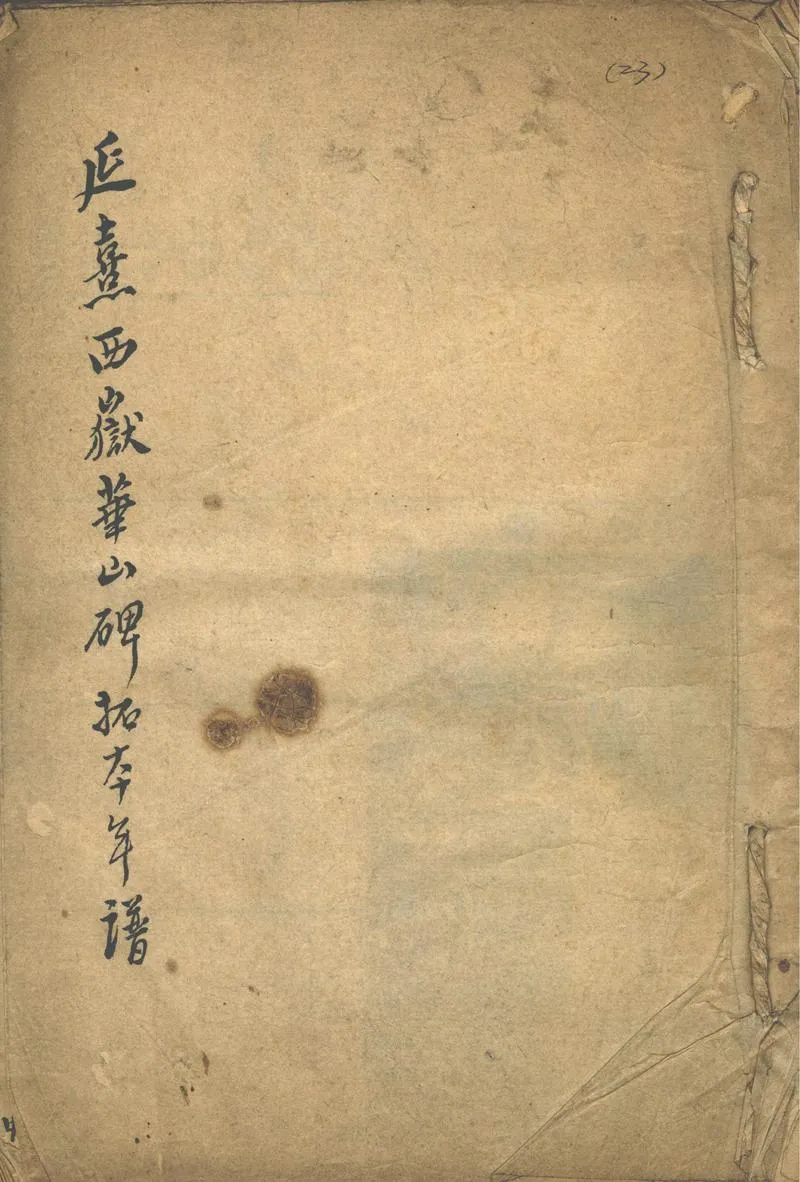 (23)
延熹西嶽華山碑拓本年譜